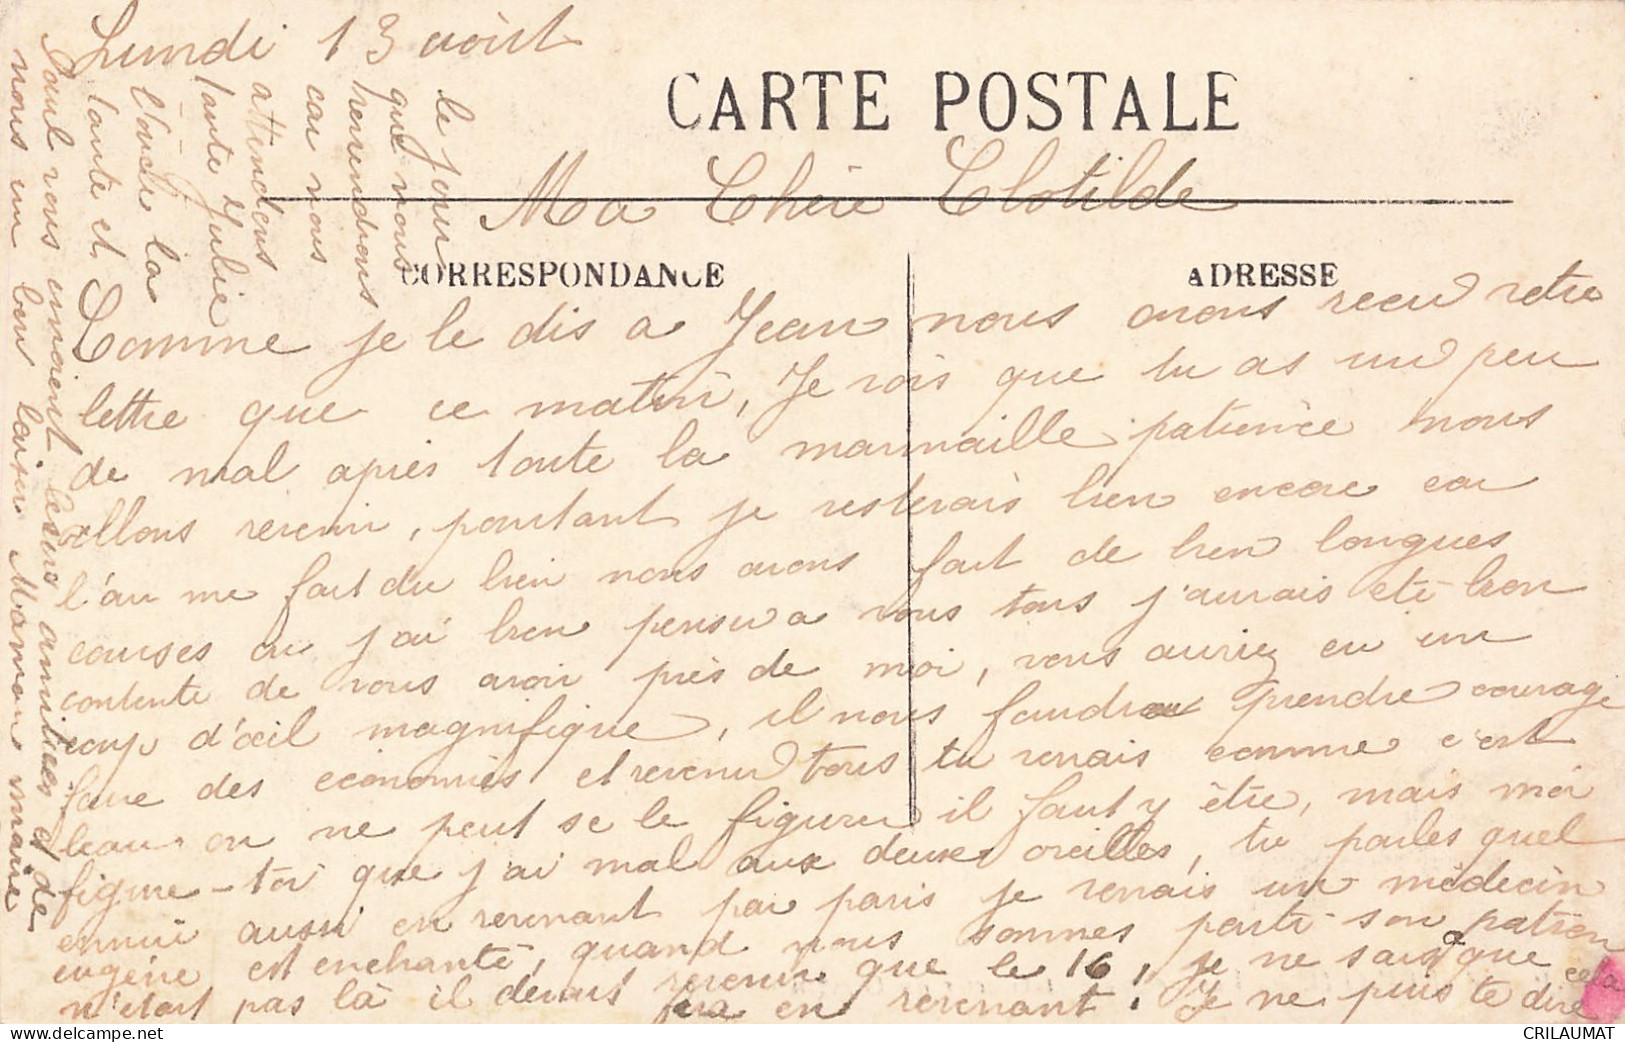 Lundi 13 août
CARTE POSTALE
Ma Chère Clotilde
CORRESPONDANCE
ADRESSE
Comme je le dis a Jean nous avons recu votre
lettre que ce matin, Je vois que tu as un peu
de mal après toute la marmaille patience nous
allons revenir, pourtant je resterais bien encore car
l'air me fait du bien nous avons fait de bien longues
courses ou j'ai bien pensé a vous tous j'aurais été bien
contente de vous avoir près de moi, vous auriez eu un
coup d'œil magnifique, il nous faudra prendre courage
faire des économies et revenir tous tu verrais comme c'est
beau on ne peut se le figurer il faut y être, mais moi
figure-toi que j'ai mal aux deux oreilles, tu parles quel
ennui aussi en revenant par paris je verrais un médecin
eugène est enchanté, quand nous sommes parti son patron
n'était pas là il devait revenir que le 16, je ne sais que cela
fera en revenant. Je ne puis te dire
le jour
que nous
reviendrons
car nous
attendons
tante Julie
l'oncle la
tante et
Paul vous envoient leurs amitiés et de
nous un bon baiser Maman marie
CRILAUMAT